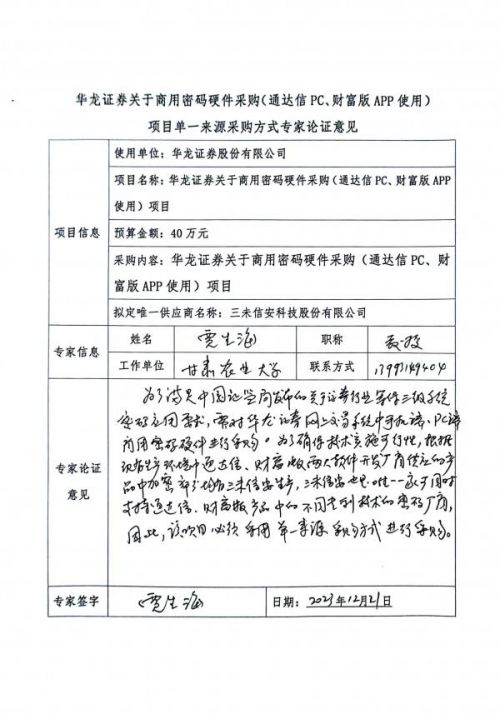 华龙证券关于商用密码硬件采购（通达信 PC、财富版 APP 使用）
项目单一来源采购方式专家论证意见
项目信息
使用单位：华龙证券股份有限公司
项目名称：华龙证券关于商用密码硬件采购（通达信 PC、财富版 APP
使用）项目
预算金额：40 万元
采购内容：华龙证券关于商用密码硬件采购（通达信 PC、财
富版 APP 使用）项目
拟定唯一供应商名称：三未信安科技股份有限公司
专家信息
姓名 贾生海 职称 教授
工作单位 甘肃农业大学 联系方式 13993149404
专家论证
意见
为了满足中国证监局发布的关于证券行业等保三级系统
密码应用要求，需对华龙证券网上交易系统中手机端、PC端
商用密码硬件进行采购。为了确保技术实施可行性，根据
现有生产环境中通达信、财富版两大软件开发厂商供应的产
品中加密部分均有三未信安生产，三未信安也是唯一一家可同时
支持通达信、财富版产品中的不同专利技术的密码厂商，
因此，该项目必须采用单一来源采购方式进行采购。
专家签字 贾生海 日期：2023年12月21日